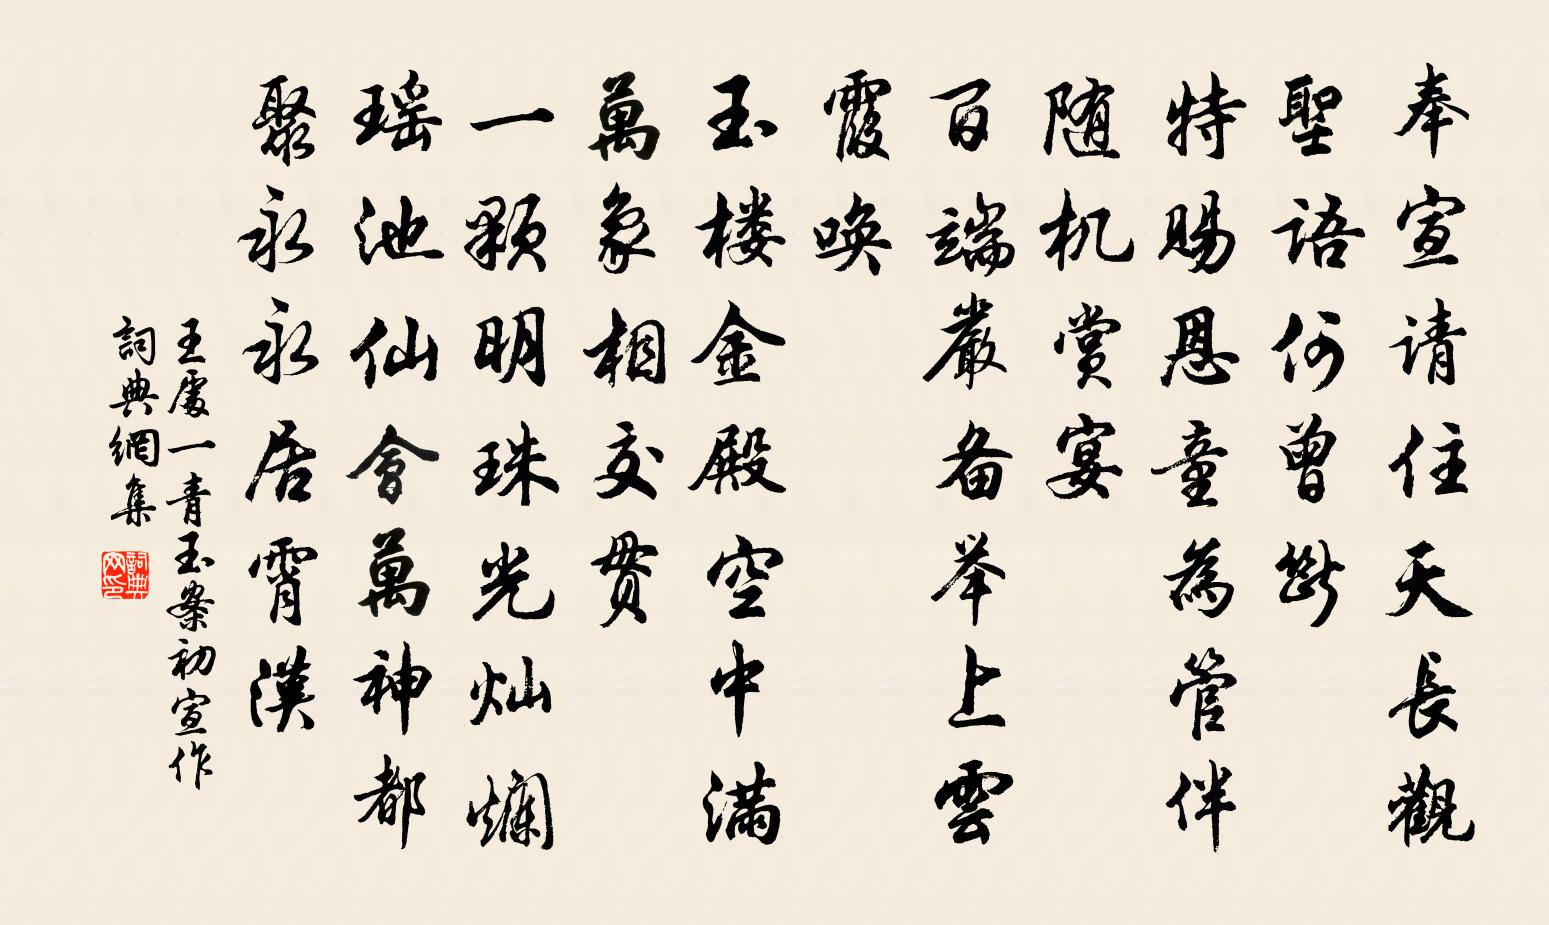 奉宣请住天長觀
聖語何曾斷
特賜恩童為管伴
随机赏宴
百端嚴备举上雲
霞唤
玉楼金殿空中滿
萬象相交贯
一顆明珠光灿爛
瑶池仙會萬神都
聚永永居霄漢
王處一青玉案初宣作
詞典網集
詞典网印